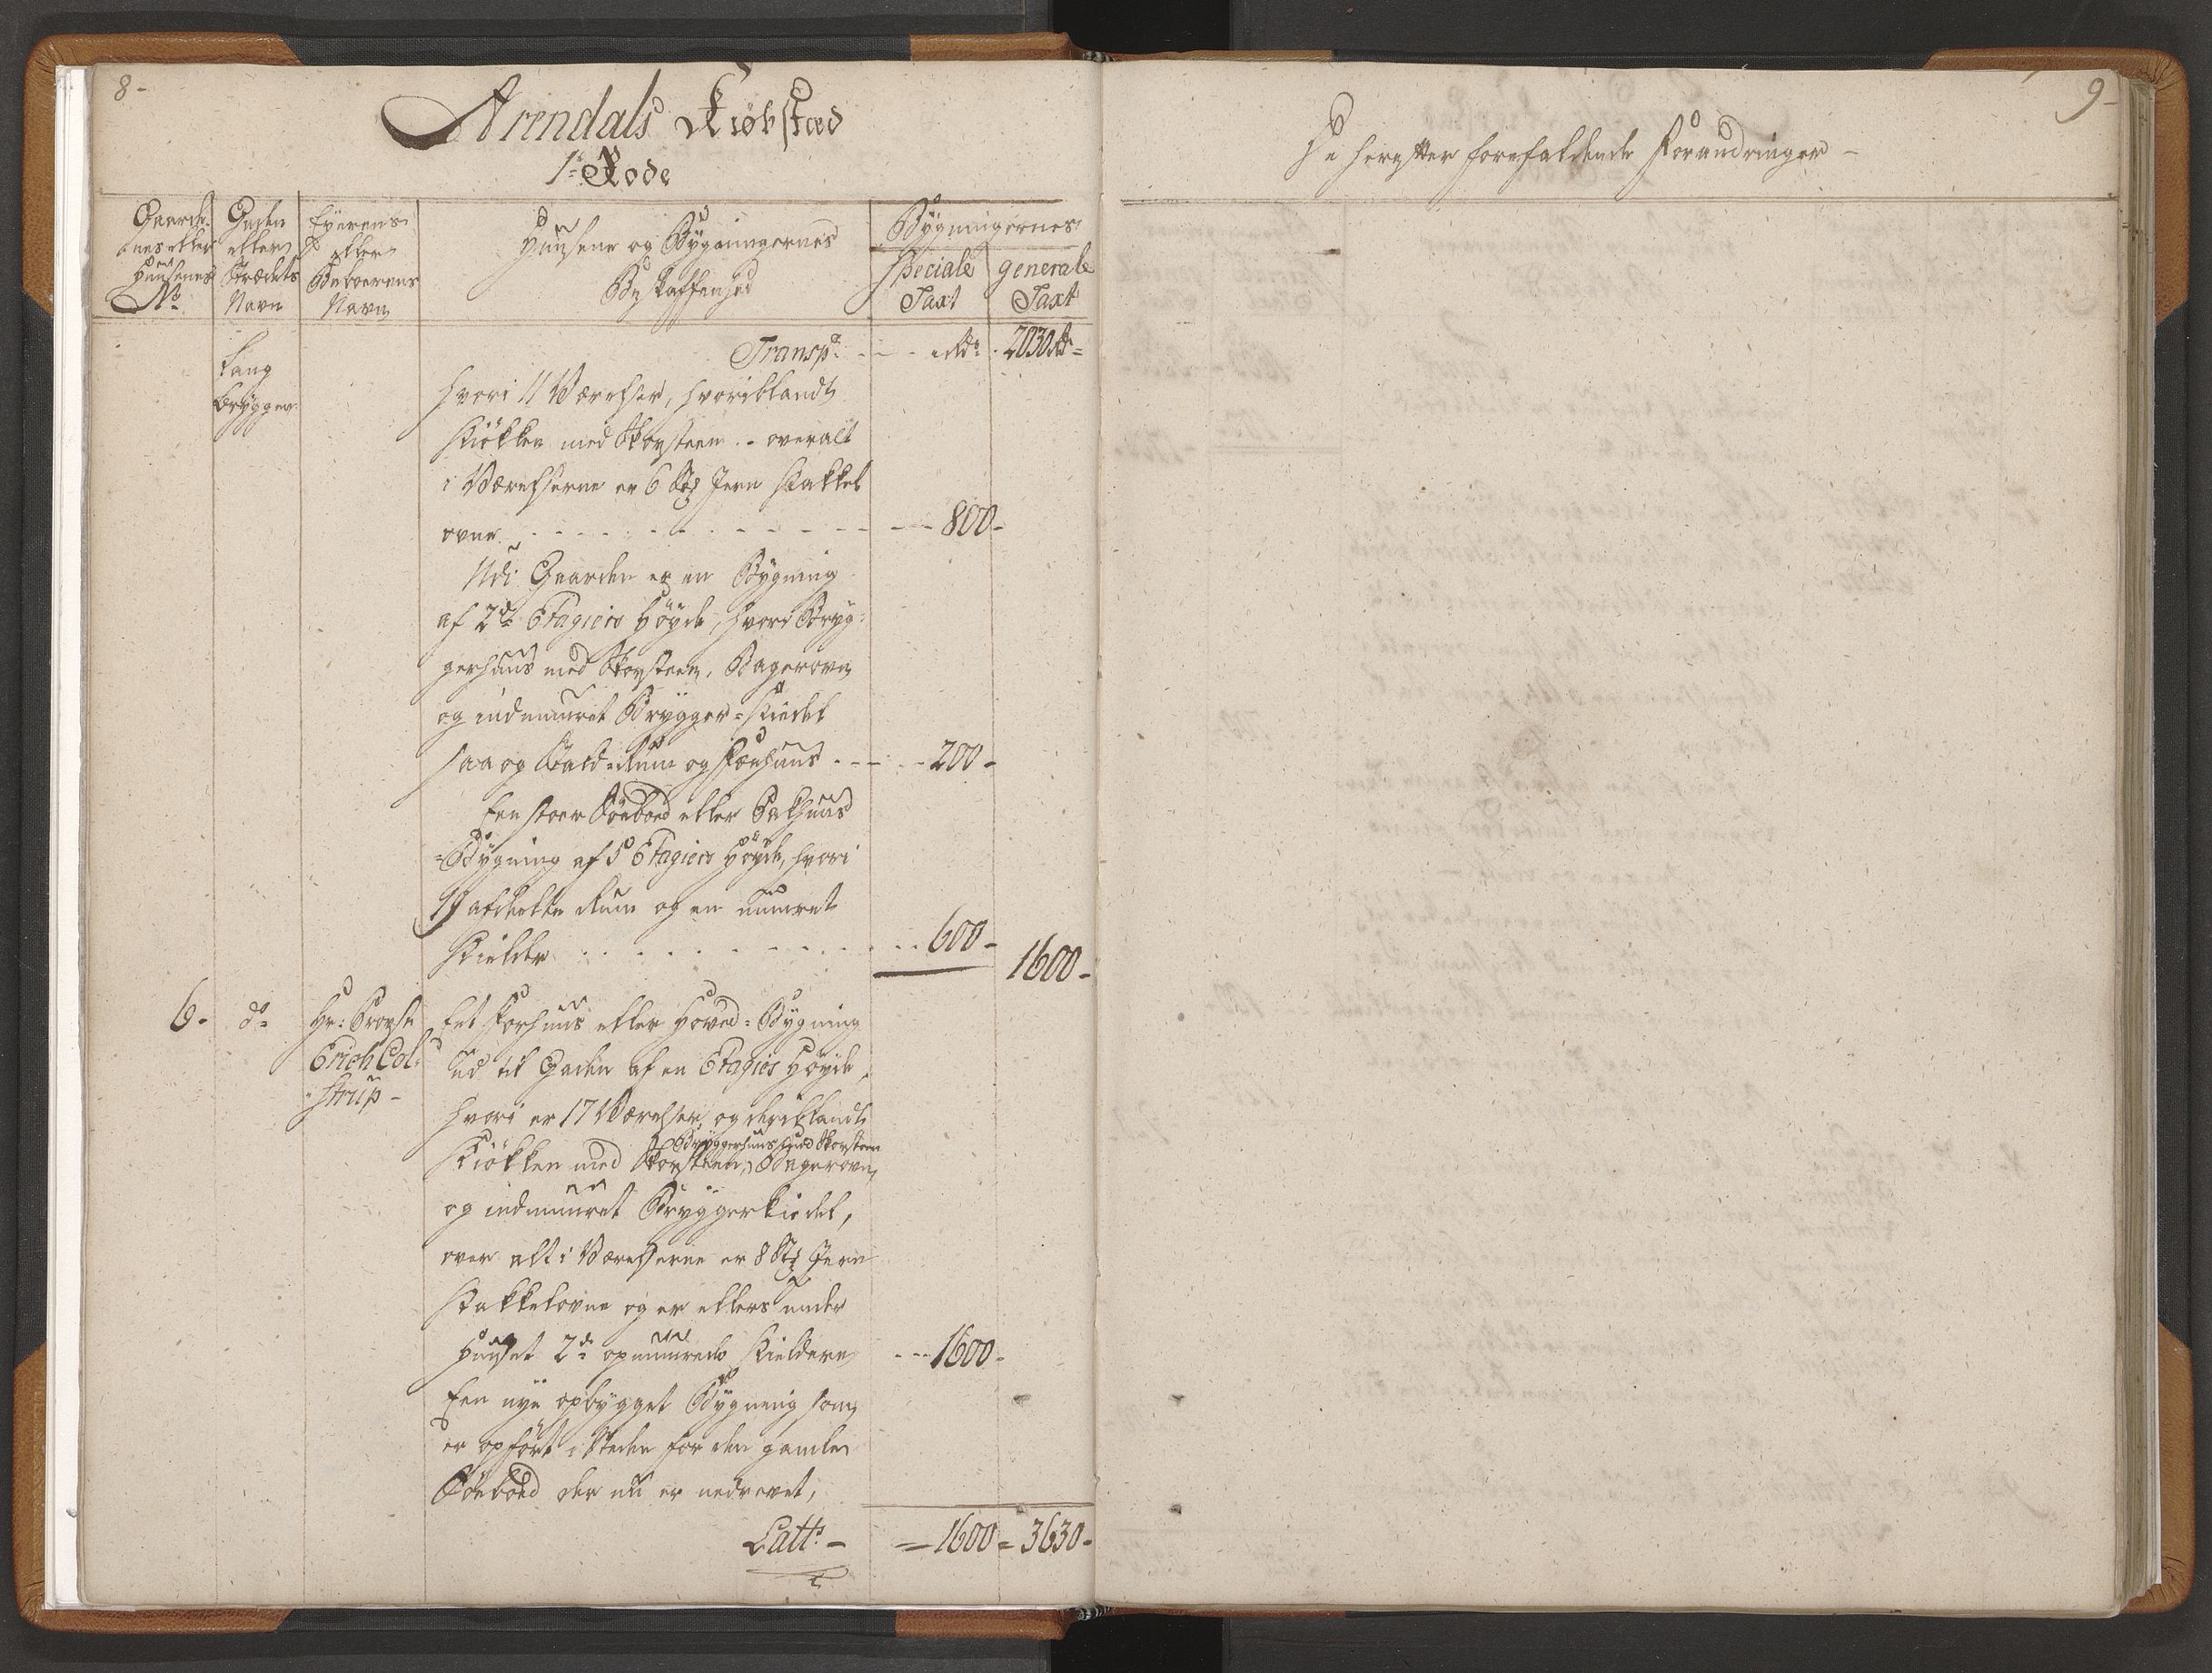 8-
Arendals Kiøbstæd
1te Rode
Gaarde
nes eller
Huusenes
No
Gaden
eller
Strædets
Navn
Eyerens
eller
Beboerens
Navn
Huusene og Bygningernes
Beskaffenhed
Bygningernes
Speciale
Taxt
generale
Taxt
Transpt - - - Rdr. 2030 Rdr =
Lang
bryggen
hvori 11 Værelser, hvoriblandt
Kiökken med Skorsteen - overalt
i Værelserne er 6 Stk Jern Kakkel
ovne - - - 800-
Udi Gaarden er en Bygning
af 2de Etagiers Höyde, hvori Bryg-
gerhuus med Skorsteen, Bagerovn
og indmuuret Brygger-Kiedel
saa og Stald-Rum og Fæehuus - - - 200-
Een stoer Söeboed eller Pakhuus
-Bygning af 5 Etagiers Höyde, hvori
afdeelte Rum og en muuret
Kielder - - - 600-
1600-
6. do Hr: Provst
Erich Col-
strup-
Eet Forhuus eller Hoved-Bygning
ud til Gaden af en Etagies Höyde,
hvori er 17 Værelser, og deriblandt
Bryggerhuus med Skorsteen
Kiökken med Skorsteen, Bagerovn,
og indmuuret Bryggerkiedel,
over alt i Værelserne er 8 Stk Jern
Kakkelovne og er ellers under
Huuset 2de opmuurede Kieldere - - - 1600-
Een nye opbygget Bygning som
er opfört i Steden for den gamle
Söeboed der nu er nedrevet,
Latts - = 1600 = 3630-
9-
De herefter forefaldende Forandringer -